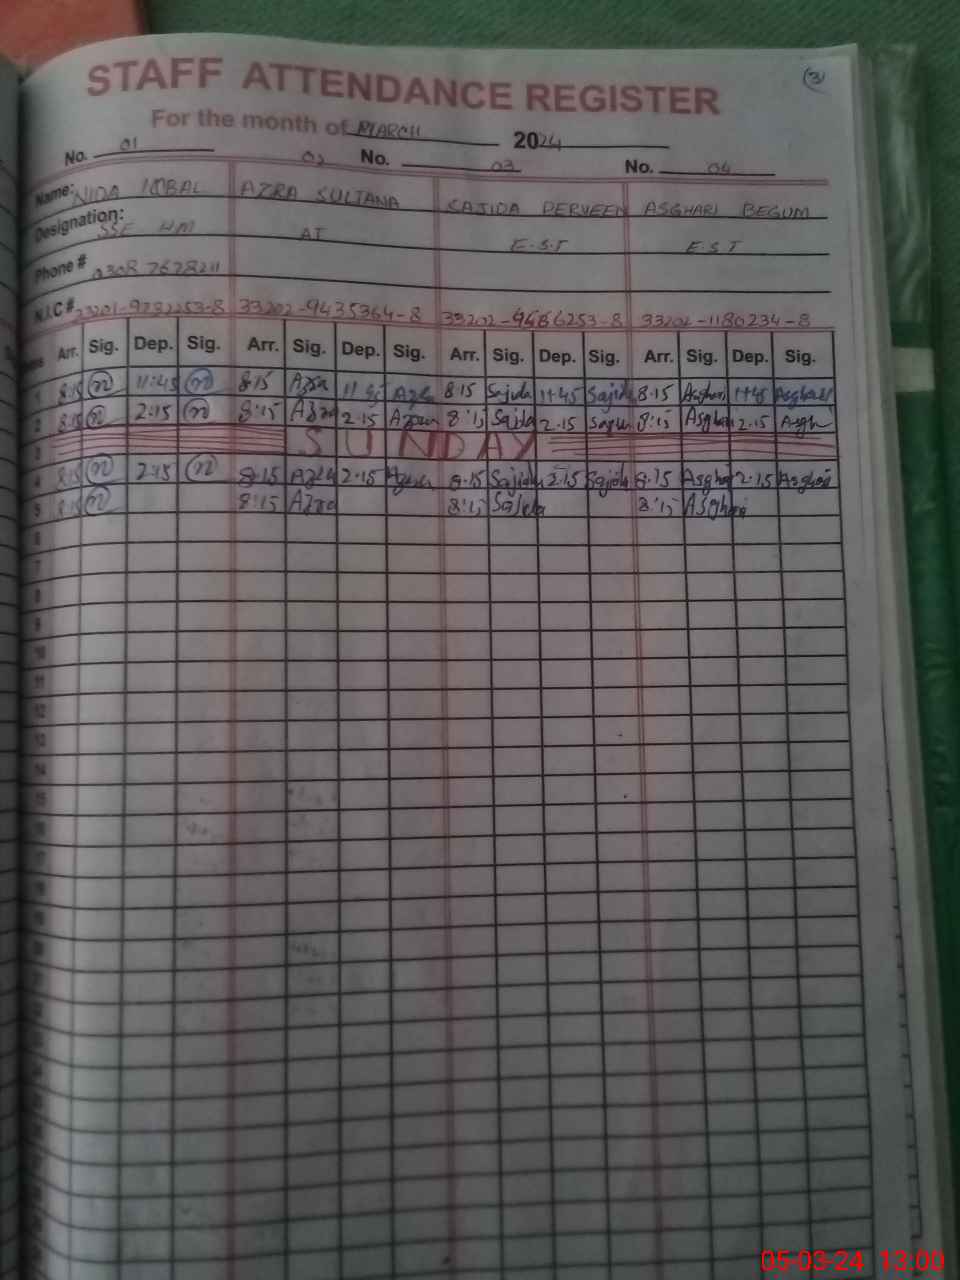 (3)
STAFF ATTENDANCE REGISTER
For the month of MARCH 2024
No. 01 02 No. 03 No. 04
Name: NIDA IQBAL AZRA SULTANA SAJIDA PERVEEN ASGHARI BEGUM
Designation: SSE HM AT E.S.T E.S.T
Phone # 0308 7678211
N.I.C # 33202-9435364-8 33202-9486253-8 33202-1180234-8
Arr. Sig. Dep. Sig. Arr. Sig. Dep. Sig. Arr. Sig. Dep. Sig. Arr. Sig. Dep. Sig.
1 8:15 n 11:45 n 8:15 Azra 11 45 Azra 8.15 Sajida 11.45 Sajida 8.15 Asghari 11.45 Asghari
2 8:15 n 2:15 n 8:15 Azra 2.15 Azra 8:15 Sajida 2.15 Sajida 8:15 Asghari 2.15 Asgh
3 SUNDAY
4 8:15 n 2:15 n 8:15 Azra 2.15 Azra 8.15 Sajida 2.15 Sajida 8.15 Asghari 2.15 Asghari
5 8:15 n 8:15 Azra 8:15 Sajida 8:15 Asghari
6
7
8
9
10
11
12
13
14
15
16
17
18
19
05-03-24 13:00